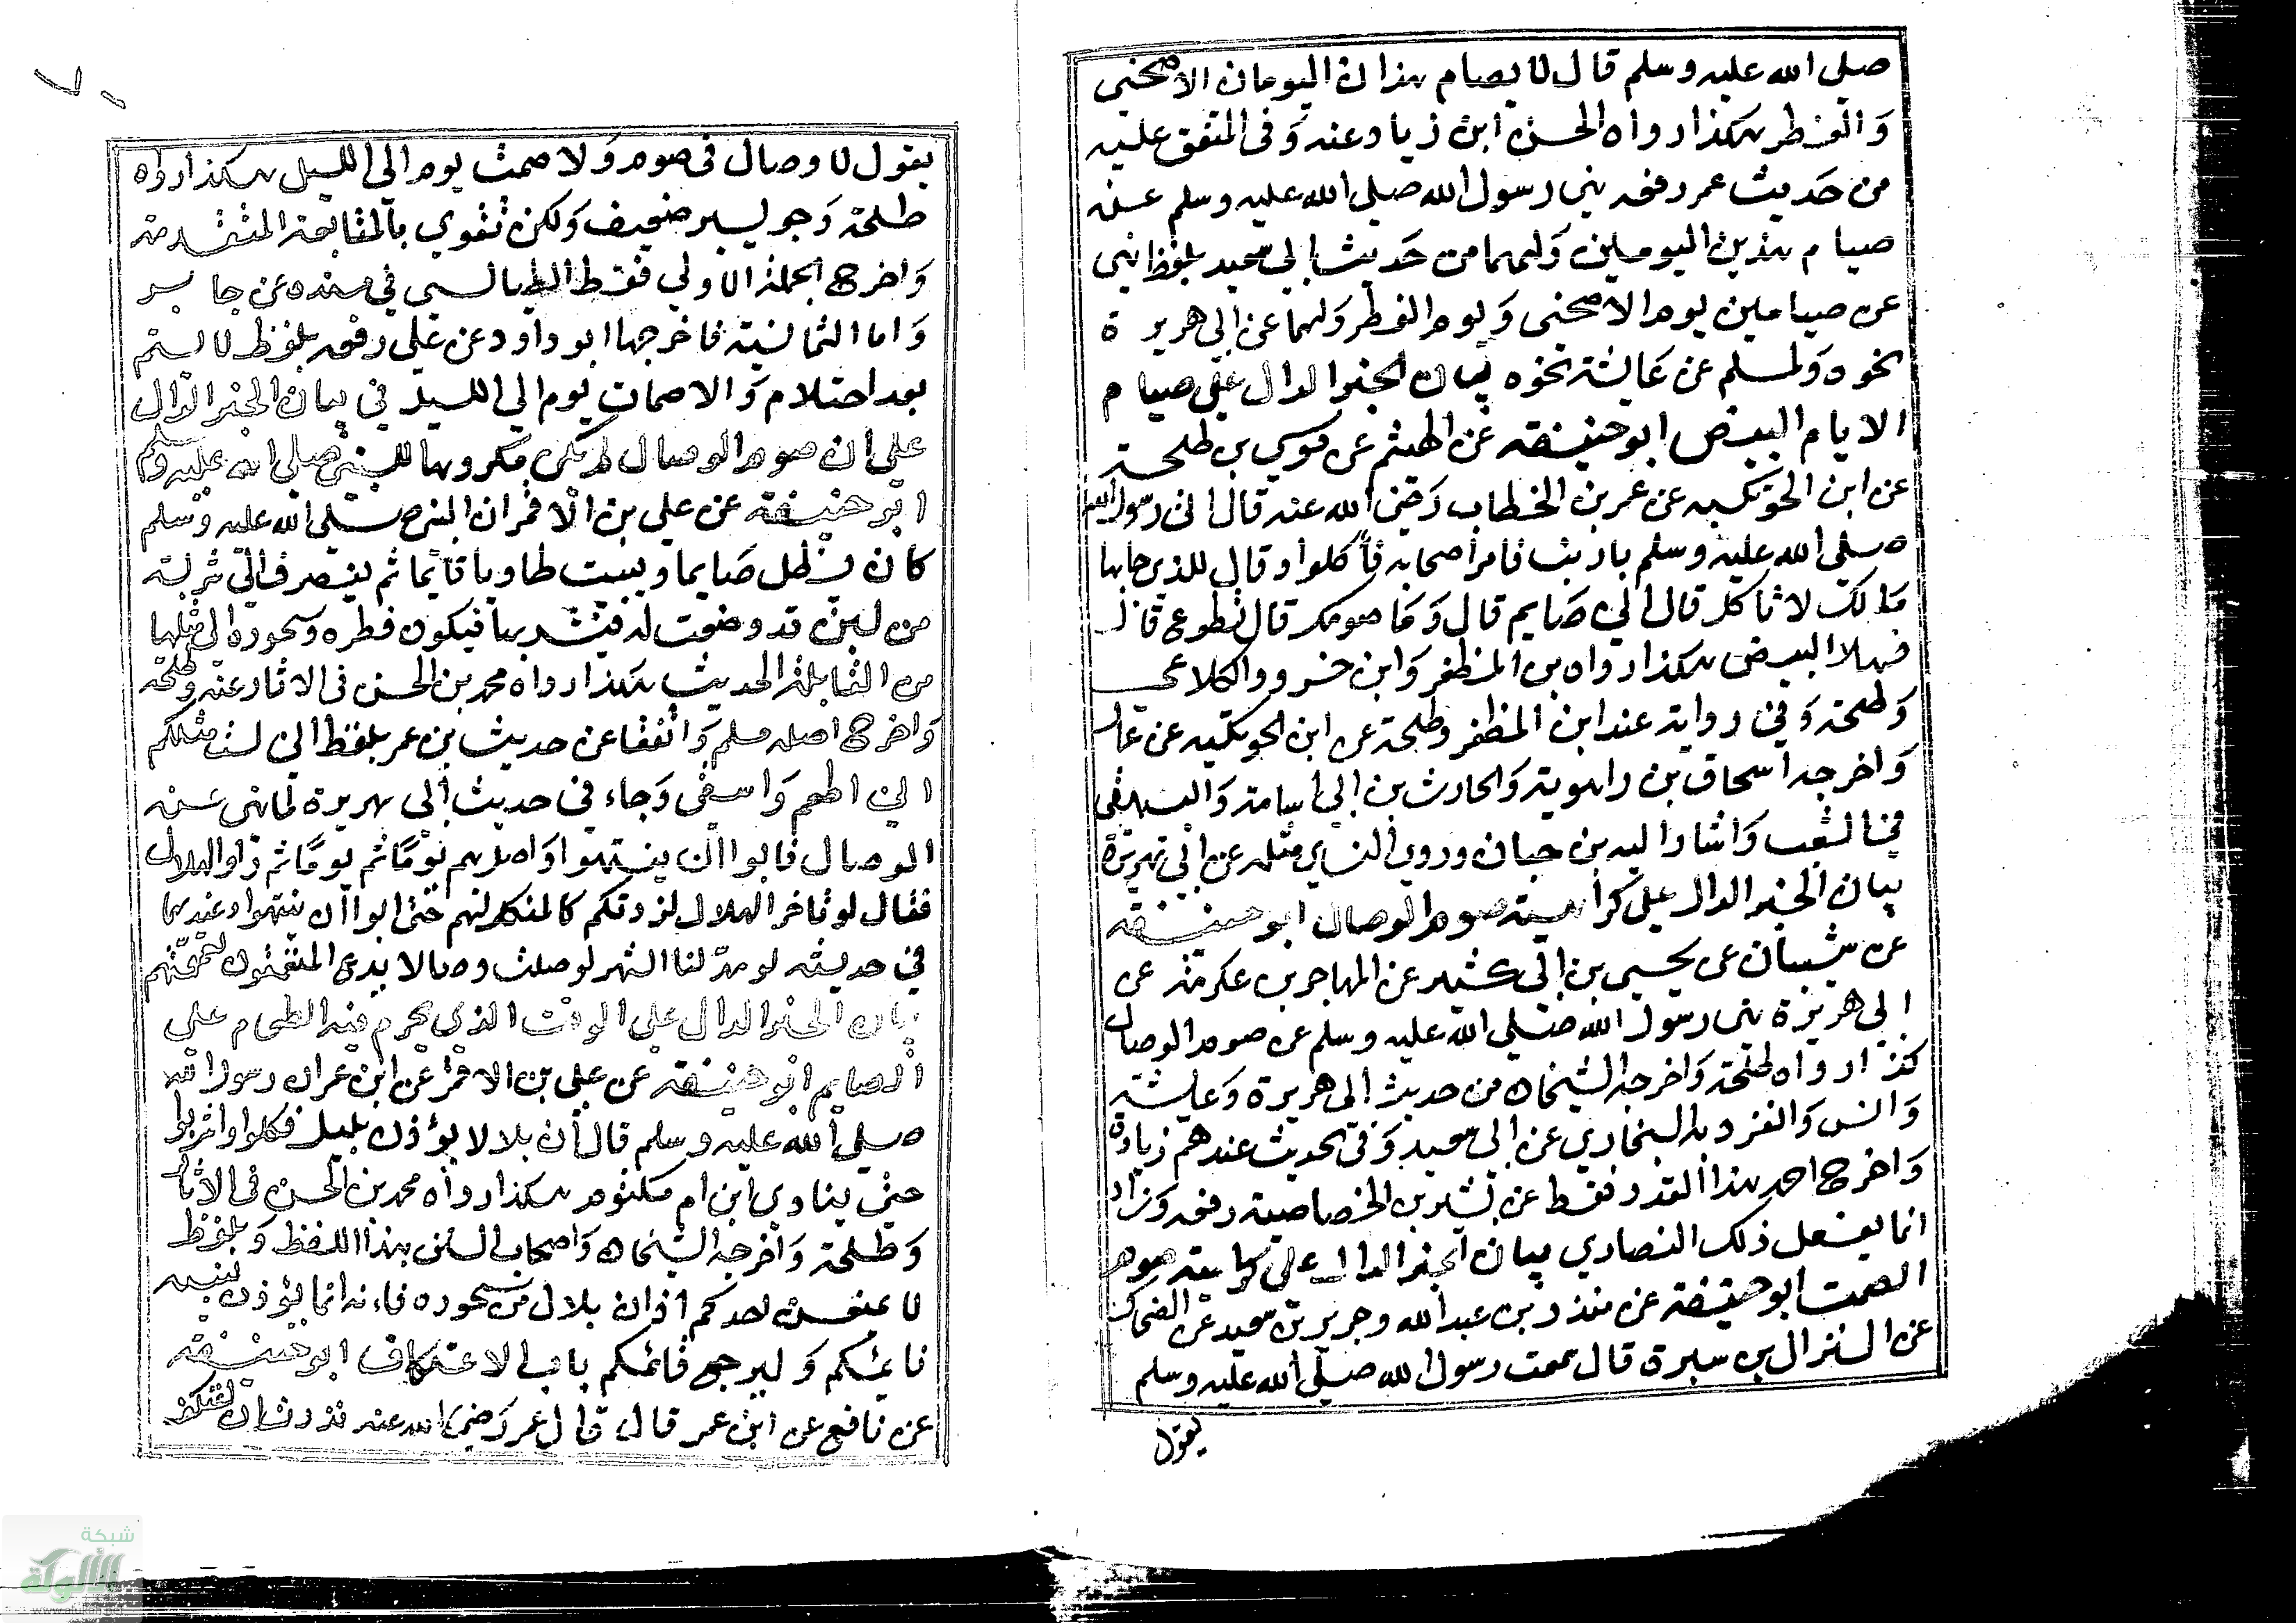 صلي الله عليه وسلم قال لا يصام هذان اليومان الاضحى
والفطر هكذا رواه الحسن ابن زياد عنه وفى المتفق عليه
من حديث عمر رفعه نهى رسول الله صلى الله عليه وسلم عن
صيام هذين اليومين ولهما من حديث ابي سعيد بلفظ نهى
عن صيامين يوم الاضحى ويوم الفطر ولهما عن ابى هريرة
نحوه ولمسلم عن عايشة نحوه بيان الخبر الدال على صيام
الايام البيض ابو حنيفة عن الهيثم عن موسي بن طلحة
عن ابن الحوتكيه عن عمر بن الخطاب رضى الله عنه قال اتى رسول الله
صلى الله عليه وسلم بارنب فامر اصحابه فاكلوا وقال للذي جابها
مالك لا تاكل قال اني صايم قال وما صومك قال تطوع قال
فهلا البيض هكذا رواه بن المظفر وابن خسرو والكلاعى
وطلحة وفي رواية عند ابن المظفر وطلحة عن ابن الحوتكيه عن عمار
واخرجه اسحاق بن راهوية والحارث بن ابي اسامة والبيهقى
في الشعب واشار اليه بن حبان وروي النساي مثله عن ابى هريرة
بيان الخبر الدال علي كراهية صوم الوصال ابو حنيفة
عن شيبان عن يحيى بن ابي كثير عن المهاجر بن عكرمة عن
ابي هريرة نهى رسول الله صلى الله عليه وسلم عن صوم الوصال
كذا رواه طلحة واخرجه الشيخان من حديث ابى هريرة وعايشة
وانس وانفرد به البخاري عن ابى سعيد وفى الحديث عندهم زيادة
واخرج احمد هذا القدر فقط عن بشير بن الخصاصية رفعه وزاد
انما يفعل ذلك النصارى بيان الخبر الدال على كراهية صوم
الصمت ابو حنيفة عن منذر بن عبد الله وجرير بن سعيد عن الضحاك
عن النزال بن سبرة قال سمعت رسول الله صلى الله عليه وسلم
يقول
يقول لا وصال فى صوم ولا صمت يوم الى الليل هكذا رواه
طلحة وجويبر ضعيف ولكن تقوي بالمتابعة المتقدمة
واخرج الجملة الاولي فقط الطيالسى في مسنده عن جابر
واما الثانية فاخرجها ابو داود عن على رفعه بلفظ لا يتم
بعد احتلام ولا صمات يوم الي الليل في بيان الخبر الدال
على ان صوم الوصال لم يكن مكروها للنبى صلى الله عليه وسلم
ابو حنيفة عن علي بن الاقمر ان النبي صلى الله عليه وسلم
كان يظل صايما ويبيت طاويا قايما ثم ينصرف الى شربة
من لبن قد وضعت له فيشربها فيكون فطره وسحوره الى مثلها
من القابلة الحديث هكذا رواه محمد بن الحسن فى الاثار عنه وطلحة
واخرج اصله مسلم واتفقا عن حديث بن عمر بلفظ اني لست مثلكم
اني اطعم واسقى وجاء في حديث ابى هريرة لما نهى عن
الوصال فابوا ان ينتهوا واصل بهم يوما ثم يوما ثم راوا الهلال
فقال لو تاخر الهلال لزدتكم كالمنكل لهم حتى ابوا ان ينتهوا وعندهما
في حديثه لو مد لنا الشهر لوصلت وصالا يدع المتعمقون تعمقهم
بيان الخبر الدال على الوقت الذي يحرم فيه الطعام على
الصايم ابو حنيفة عن على بن الاقمر عن ابن عمر ان رسول الله
صلى الله عليه وسلم قال ان بلالا يؤذن بليل فكلوا واشربوا
حتى ينادى ابن ام مكتوم هكذا رواه محمد بن الحسن فى الاثار
وطلحة واخرجه الشيخان واصحاب السنن بهذا اللفظ وبلفظ
لا يمنعن احدكم اذان بلال من سحوره فانه انما يؤذن لينبه
نائمكم وليرجع قائمكم باب الاعتكاف ابو حنيفة
عن نافع عن ابن عمر قال قال عمر رضي الله عنه نذرت ان اعتكف
شبكة
الألوكة